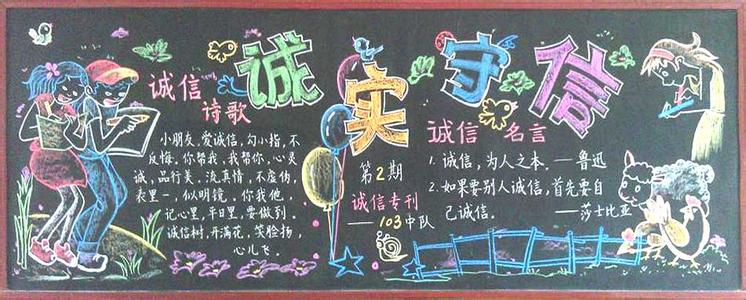 诚实守信
诚信
诗歌
小朋友，爱诚信，勾小指，不
反悔，你帮我，我帮你，心灵
诚，品行美，流真情，不虚伪，
表里一，似明镜。你我他，
记心里，平日里，要做到。
诚信树，开满花，笑脸扬，
心儿飞。
第2期
诚信专刊
——103中队
诚信 名言
1. 诚信，为人之本。——鲁迅
2. 如果要别人诚信，首先要自
己诚信。 ——莎士比亚